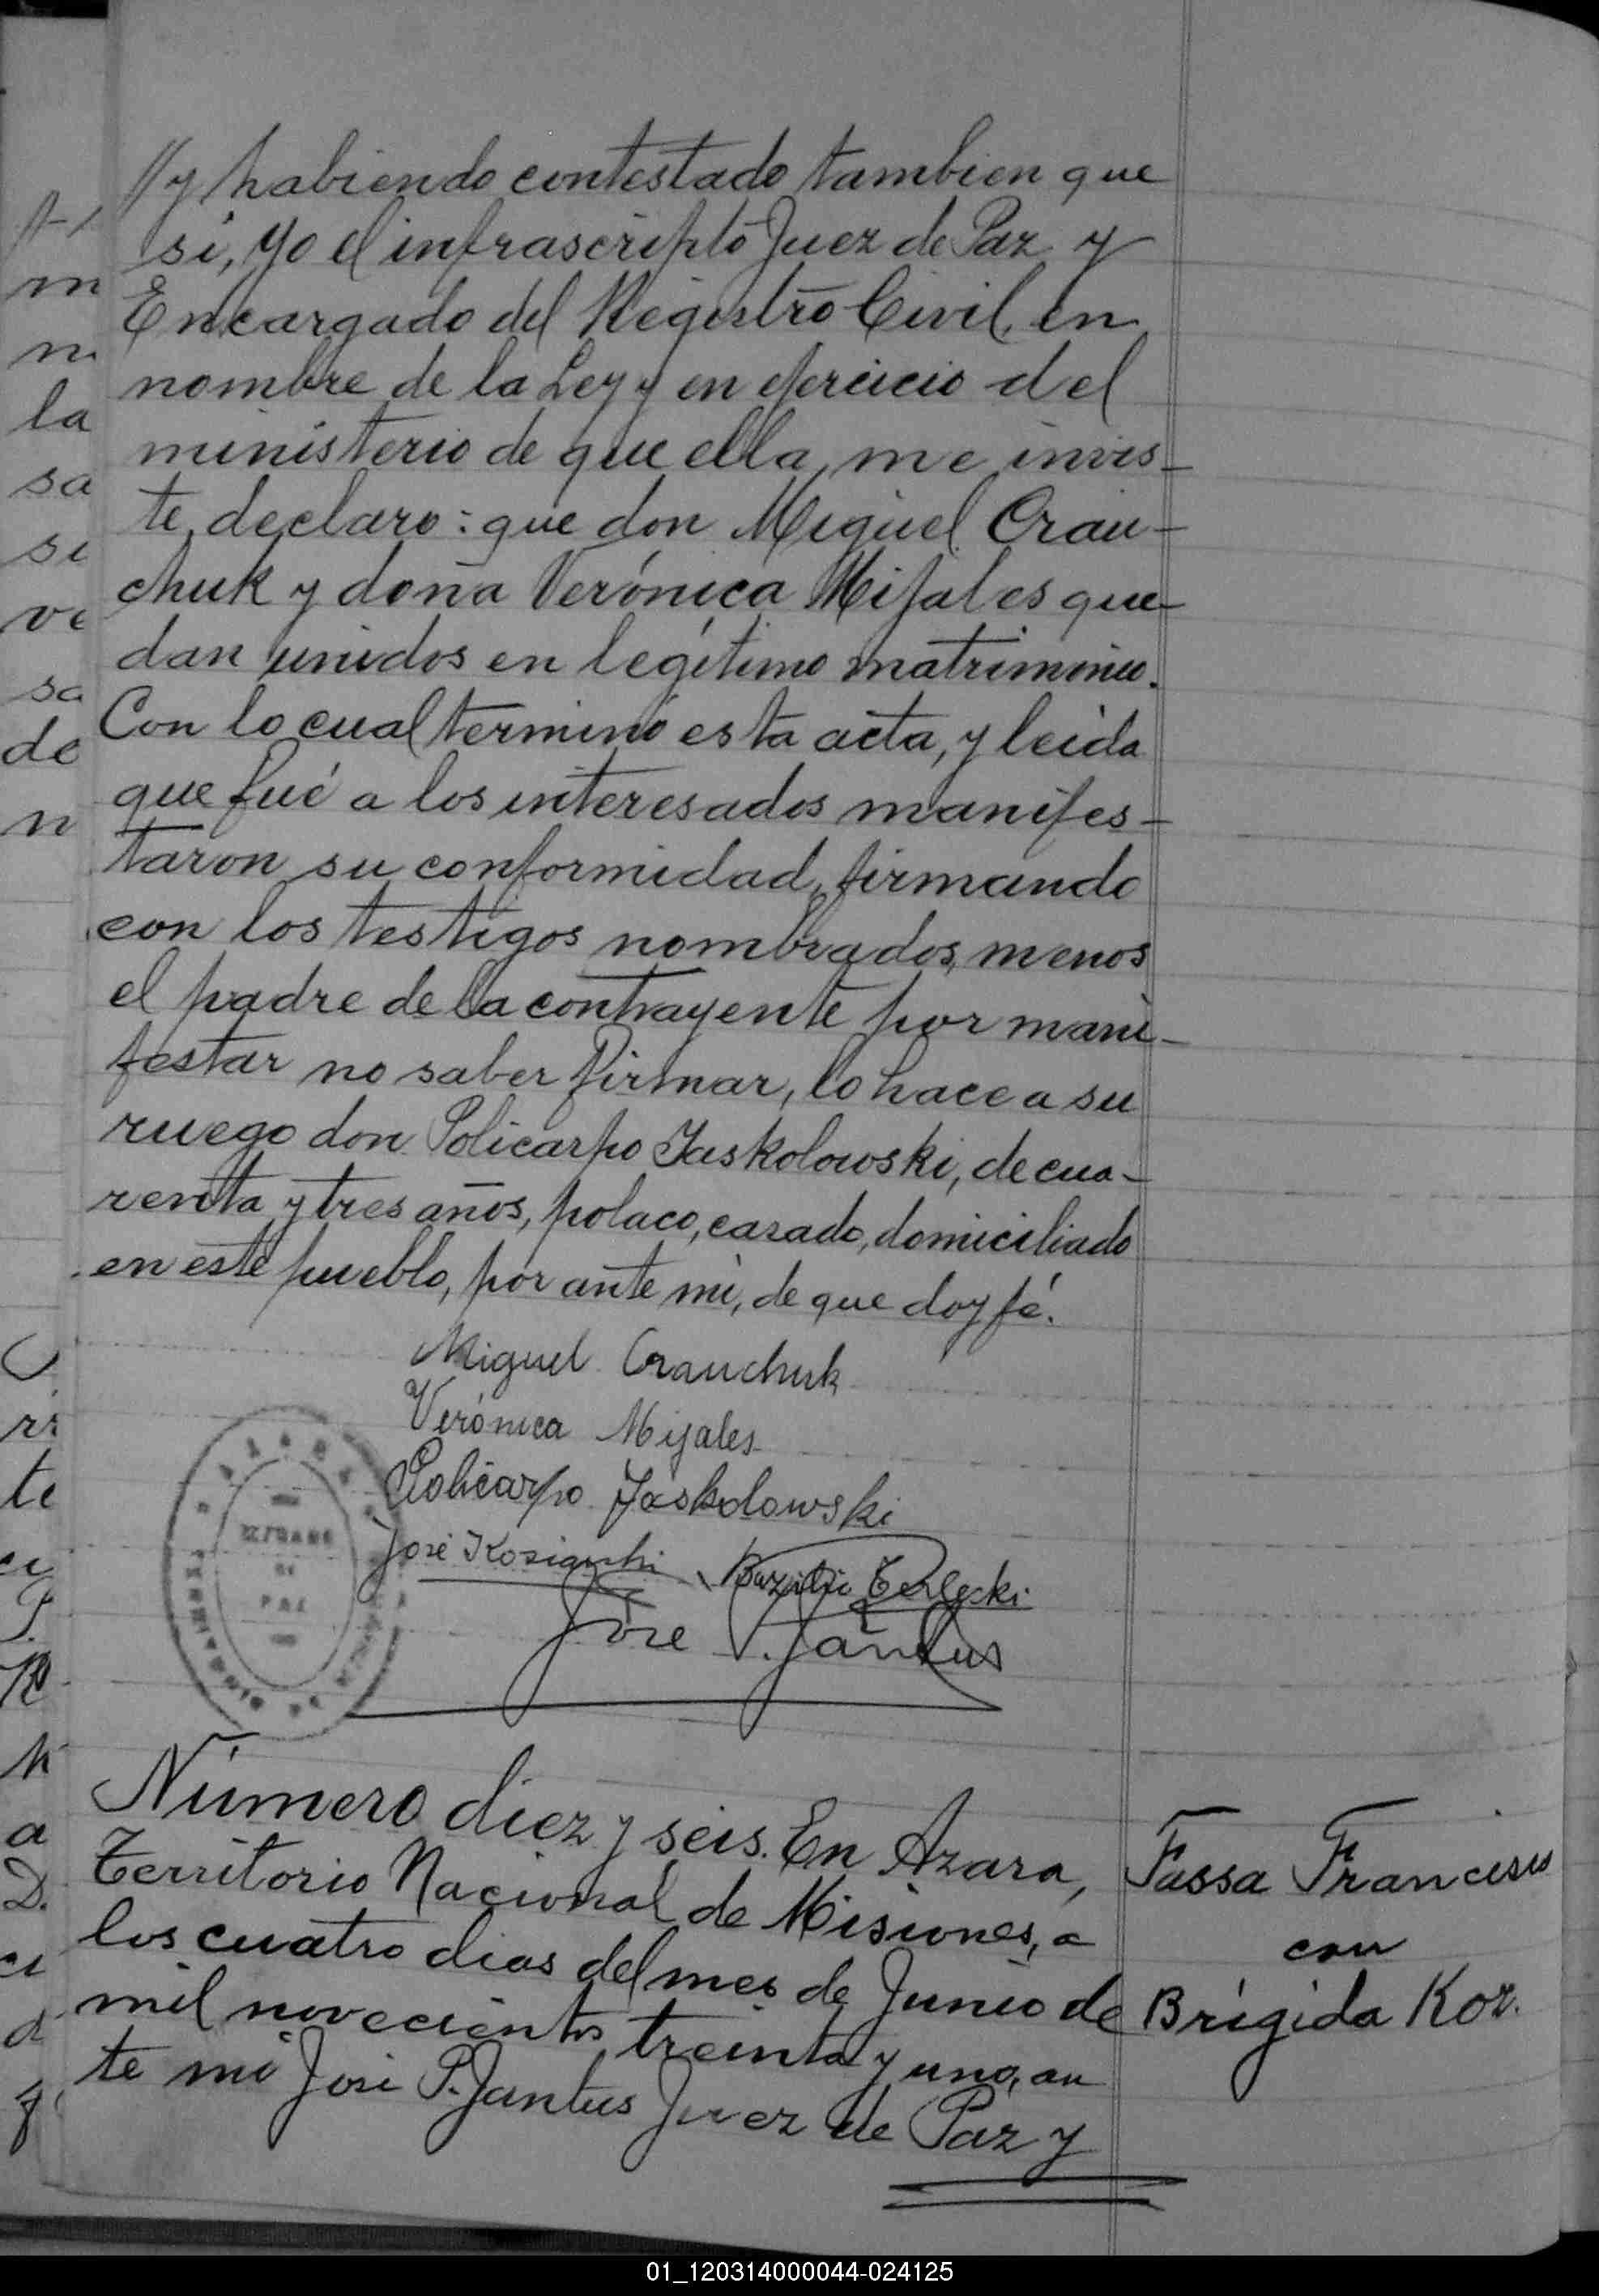 //y habiendo contestado tambien que
si, yo el infrascripto Juez de Paz y
Encargado del Registro Civil, en
nombre de la Ley y en ejercicio del
ministerio de que ella me invis-
te, declaro: que don Miguel Crau-
chuk y doña Verónica Mijales que-
dan unidos en legítimo matrimonio.
Con lo cual terminó esta acta, y leida
que fué a los interesados manifes-
taron su conformidad, firmando
con los testigos nombrados, menos
el padre de la contrayente por mani-
festar no saber firmar, lo hace a su
ruego don Policarpo Jaskolowski, de cua-
renta y tres años, polaco, casado, domiciliado
en este pueblo, por ante mi, de que doy fé.
Miguel Crauchuk
Verónica Mijales
Policarpo Jaskolowski
José Bazilio Terlecki
José P. Jantus
JUZGADO
DE
PAZ
Número diez y seis. En Azara,
Territorio Nacional de Misiones, a
los cuatro dias del mes de Junio de
mil novecientos treinta y uno, an
te mi José P. Jantus Juez de Paz y
Fassa Francisco
con
Brígida Koz.
01_120314000044-024125